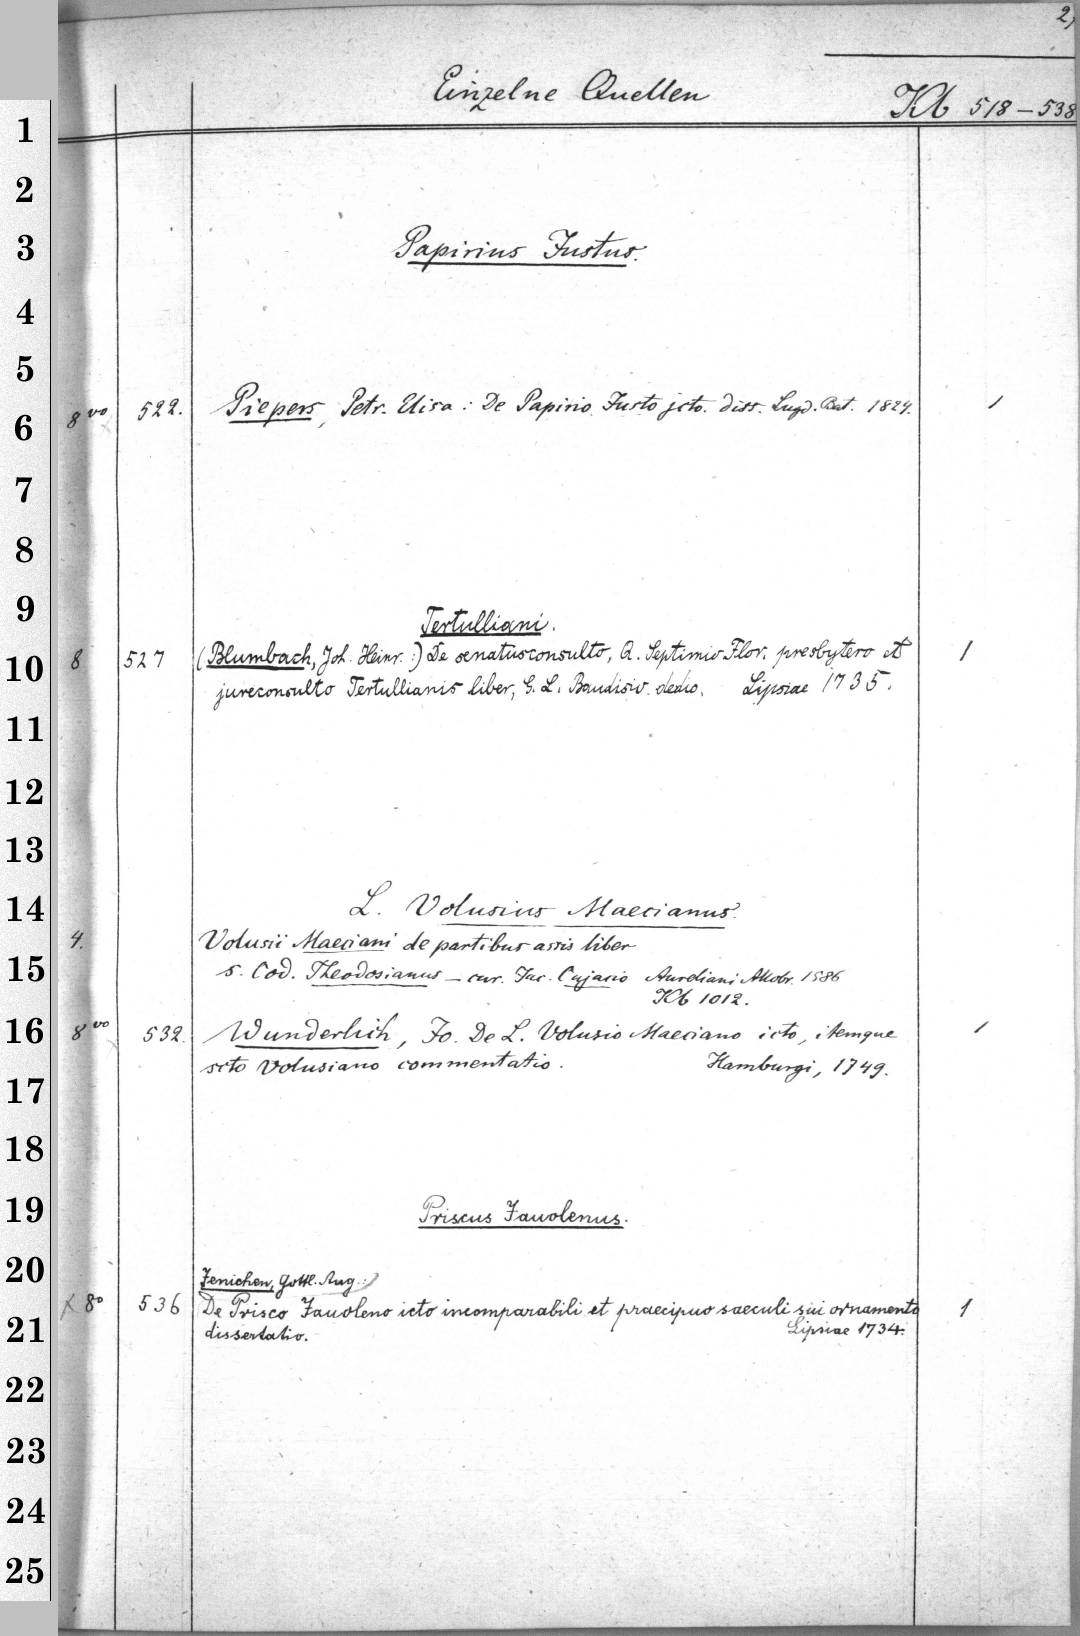 2,
Einzelne Quellen
Kb 518-538
1
2
3 Papirius Justus.
4
5
6 8vo 522. Piepers, Petr. Elisa: De Papirio Justo jcto. diss. Lugd. Bat. 1824. 1
7
8
9 Tertulliani.
10 8 527 (Blumbach, Joh. Heinr.:) De senatusconsulto, Q. Septimio Flor. presbytero et 1
jureconsulto Tertullianis liber, G. L. Baudisio dedic. Lipsiae 1735.
11
12
13
14 L. Volusius Maecianus.
4. Volusii Maeciani de partibus assis liber
15 s. Cod. Theodosianus - cur. Jac. Cujacio Aureliani Allobr. 1586
Kb 1012.
16 8vo 532. Wunderlich, Jo. De L. Volusio Maeciano icto, itemque 1
scto Volusiano commentatio. Hamburgi, 1749.
17
18
19 Priscus Javolenus.
20 Jenichen, Gottl. Aug.:)
x 8o 536 De Prisco Javoleno icto incomparabili et praecipuo saeculi sui ornamento 1
21 dissertatio. Lipsiae 1734.
22
23
24
25